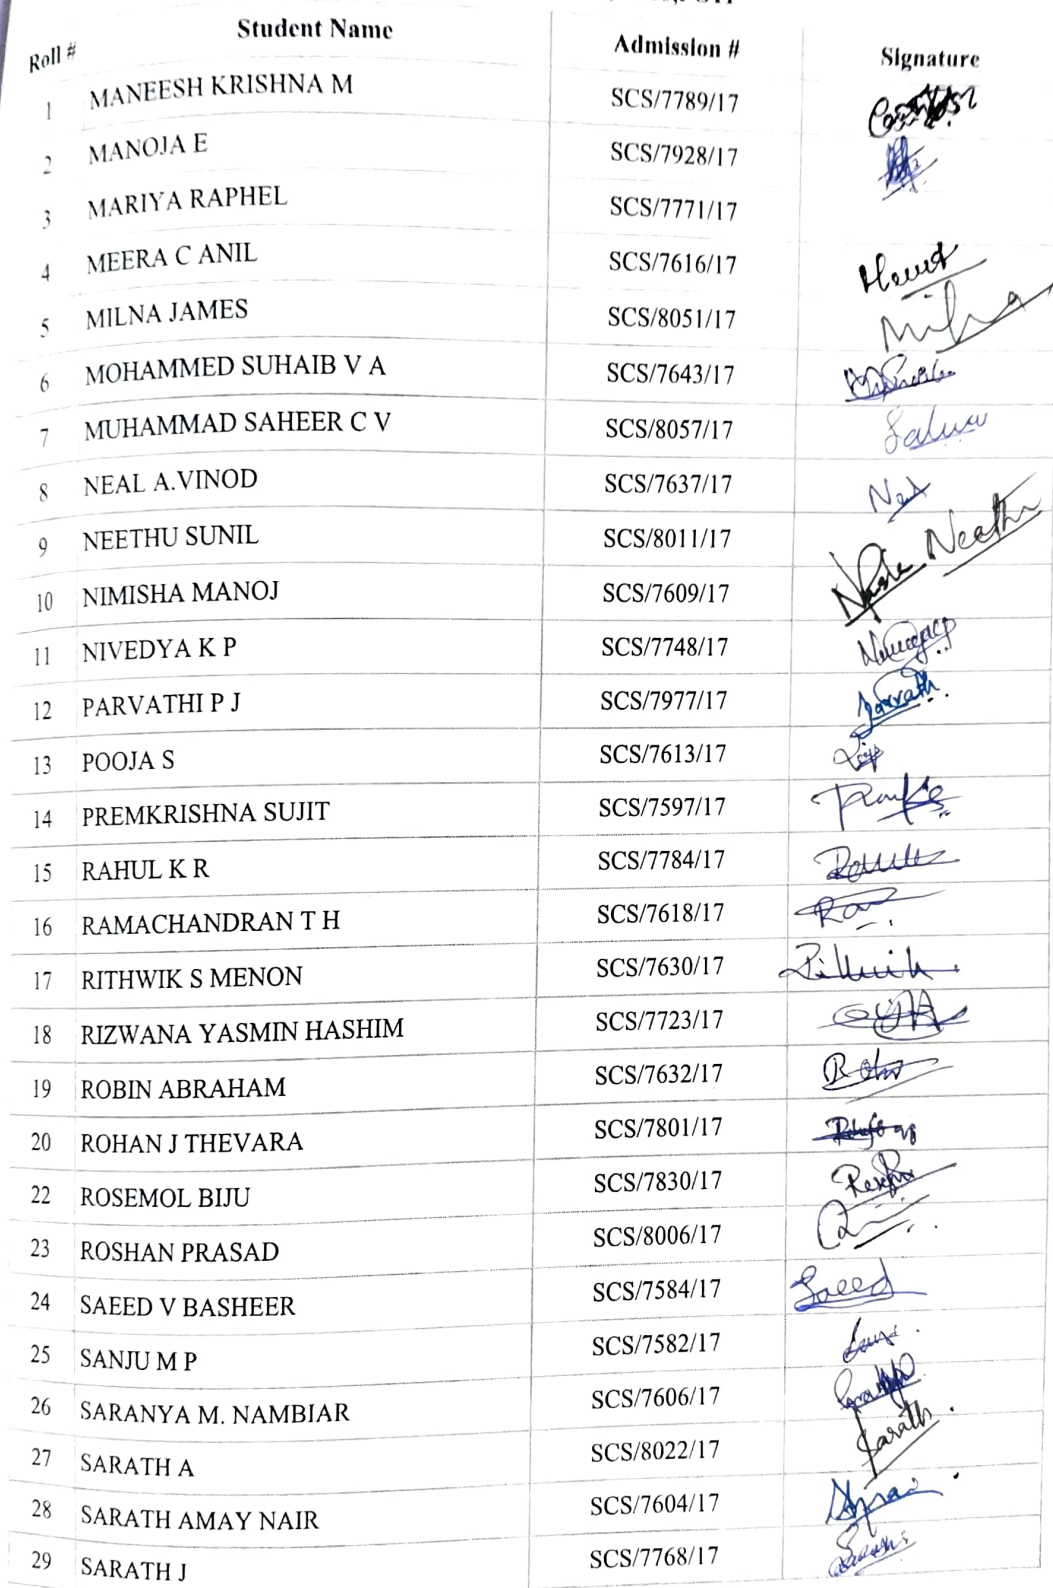 Roll # Student Name Admission # Signature
1 MANEESH KRISHNA M SCS/7789/17
2 MANOJA E SCS/7928/17
3 MARIYA RAPHEL SCS/7771/17
4 MEERA C ANIL SCS/7616/17
5 MILNA JAMES SCS/8051/17 Milna
6 MOHAMMED SUHAIB V A SCS/7643/17
7 MUHAMMAD SAHEER C V SCS/8057/17
8 NEAL A.VINOD SCS/7637/17
9 NEETHU SUNIL SCS/8011/17 Neethu
10 NIMISHA MANOJ SCS/7609/17
11 NIVEDYA K P SCS/7748/17
12 PARVATHI P J SCS/7977/17
13 POOJA S SCS/7613/17
14 PREMKRISHNA SUJIT SCS/7597/17
15 RAHUL K R SCS/7784/17
16 RAMACHANDRAN T H SCS/7618/17
17 RITHWIK S MENON SCS/7630/17
18 RIZWANA YASMIN HASHIM SCS/7723/17
19 ROBIN ABRAHAM SCS/7632/17
20 ROHAN J THEVARA SCS/7801/17
22 ROSEMOL BIJU SCS/7830/17
23 ROSHAN PRASAD SCS/8006/17
24 SAEED V BASHEER SCS/7584/17 Saeed
25 SANJU M P SCS/7582/17
26 SARANYA M. NAMBIAR SCS/7606/17
27 SARATH A SCS/8022/17 Sarath.
28 SARATH AMAY NAIR SCS/7604/17
29 SARATH J SCS/7768/17